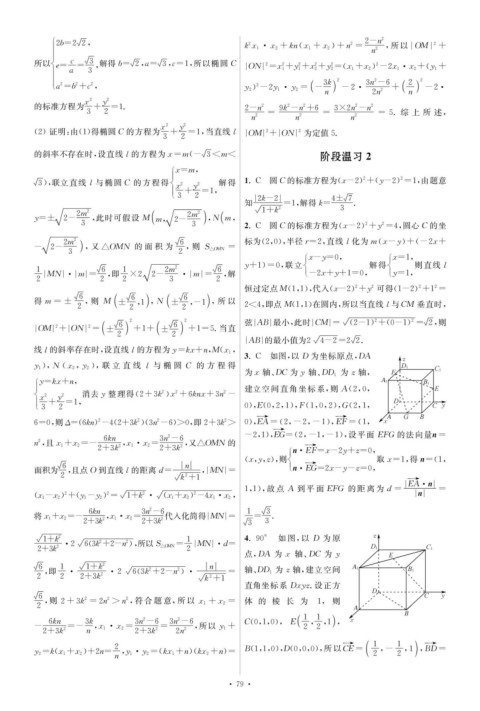 所以{2b=2√2, e=c/a=√3/3, a²=b²+c², 解得 b=√2,a=√3,c=1,所以椭圆 C
的标准方程为x²/3+y²/2=1.
(2) 证明:由(1)得椭圆 C 的方程为x²/3+y²/2=1,当直线 l
的斜率不存在时,设直线 l 的方程为 x=m(-√3<m<
√3),联立直线 l 与椭圆 C 的方程得{x=m, x²/3+y²/2=1, 解得
y=±√(2-2m²/3),此时可假设 M(m,√(2-2m²/3)),N(m,
-√(2-2m²/3)),又△OMN 的面积为√6/2,则 S△OMN=
1/2|MN|·|m|=√6/2,即1/2×2√(2-2m²/3)·|m|=√6/2,解
得 m=±√6/2,则 M(±√6/2,1),N(±√6/2,-1),所以
|OM|²+|ON|²=(±√6/2)²+1+(±√6/2)²+1=5. 当直
线 l 的斜率存在时,设直线 l 的方程为 y=kx+n,M(x₁,
y₁),N(x₂,y₂),联立直线 l 与椭圆 C 的方程得
{y=kx+n, x²/3+y²/2=1, 消去 y 整理得(2+3k²)x²+6knx+3n²-
6=0,则 Δ=(6kn)²-4(2+3k²)(3n²-6)>0,即 2+3k²>
n²,且 x₁+x₂=-6kn/(2+3k²),x₁·x₂=(3n²-6)/(2+3k²),又△OMN 的
面积为√6/2,且点 O 到直线 l 的距离 d=|n|/√(k²+1),|MN|=
(x₁-x₂)²+(y₁-y₂)²=√(1+k²)·√((x₁+x₂)²-4x₁·x₂),
将 x₁+x₂=-6kn/(2+3k²),x₁·x₂=(3n²-6)/(2+3k²)代入化简得|MN|=
√(1+k²)/(2+3k²)·2√(6(3k²+2-n²)),所以 S△OMN=1/2|MN|·d=
√6/2,即1/2·√(1+k²)/(2+3k²)·2√(6(3k²+2-n²))·|n|/√(k²+1)=
√6/2,则 2+3k²=2n²>n²,符合题意,所以 x₁+x₂=
-6kn/(2+3k²)=-3k/n,x₁·x₂=(3n²-6)/(2+3k²)=(3n²-6)/2n²,所以 y₁+
y₂=k(x₁+x₂)+2n=2/n,y₁·y₂=(kx₁+n)(kx₂+n)=
k²x₁·x₂+kn(x₁+x₂)+n²=(2-n²)/n²,所以|OM|²+
|ON|²=x₁²+y₁²+x₂²+y₂²=(x₁+x₂)²-2x₁·x₂+(y₁+
y₂)²-2y₁·y₂=(-3k/n)²-2·(3n²-6)/2n²+(2/n)²-2·
(2-n²)/n²=(9k²-n²+6)/n²=(3×2n²-n²)/n²=5. 综上所述,
|OM|²+|ON|²为定值 5.
阶段温习 2
1. C 圆 C的标准方程为(x-2)²+(y-2)²=1,由题意
知|2k-2|/√(1+k²)=1,解得 k=(4±√7)/3.
2. C 圆 C 的标准方程为(x-2)²+y²=4,圆心 C 的坐
标为(2,0),半径 r=2,直线 l 化为 m(x-y)+(-2x+
y+1)=0,联立{x-y=0, -2x+y+1=0, 解得{x=1, y=1, 则直线 l
恒过定点 M(1,1),代入(x-2)²+y²可得(1-2)²+1²=
2<4,即点 M(1,1)在圆内,所以当直线 l 与 CM 垂直时,
弦|AB|最小,此时|CM|=√((2-1)²+(0-1)²)=√2,则
|AB|的最小值为2√(4-2)=2√2.
3. C 如图,以 D 为坐标原点,DA
为 x 轴、DC 为 y 轴、DD₁ 为 z 轴,
建立空间直角坐标系,则 A(2,0,
0),E(0,2,1),F(1,0,2),G(2,1,
0),EA=(2,-2,-1),EF=(1,
-2,1),EG=(2,-1,-1),设平面 EFG 的法向量n=
(x,y,z),则{n·EF=x-2y+z=0, n·EG=2x-y-z=0, 取 x=1,得 n=(1,
1,1),故点 A 到平面 EFG 的距离为 d=|EA·n|/|n|=
1/√3=√3/3.
4. 90° 如图,以 D 为原
点,DA 为 x 轴、DC 为 y
轴、DD₁ 为 z 轴,建立空间
直角坐标系 Dxyz.设正方
体的棱长为 1,则
C(0,1,0),E(1/2,1/2,1),
B(1,1,0),D(0,0,0),所以CE=(1/2,-1/2,1),BD=
· 79 ·